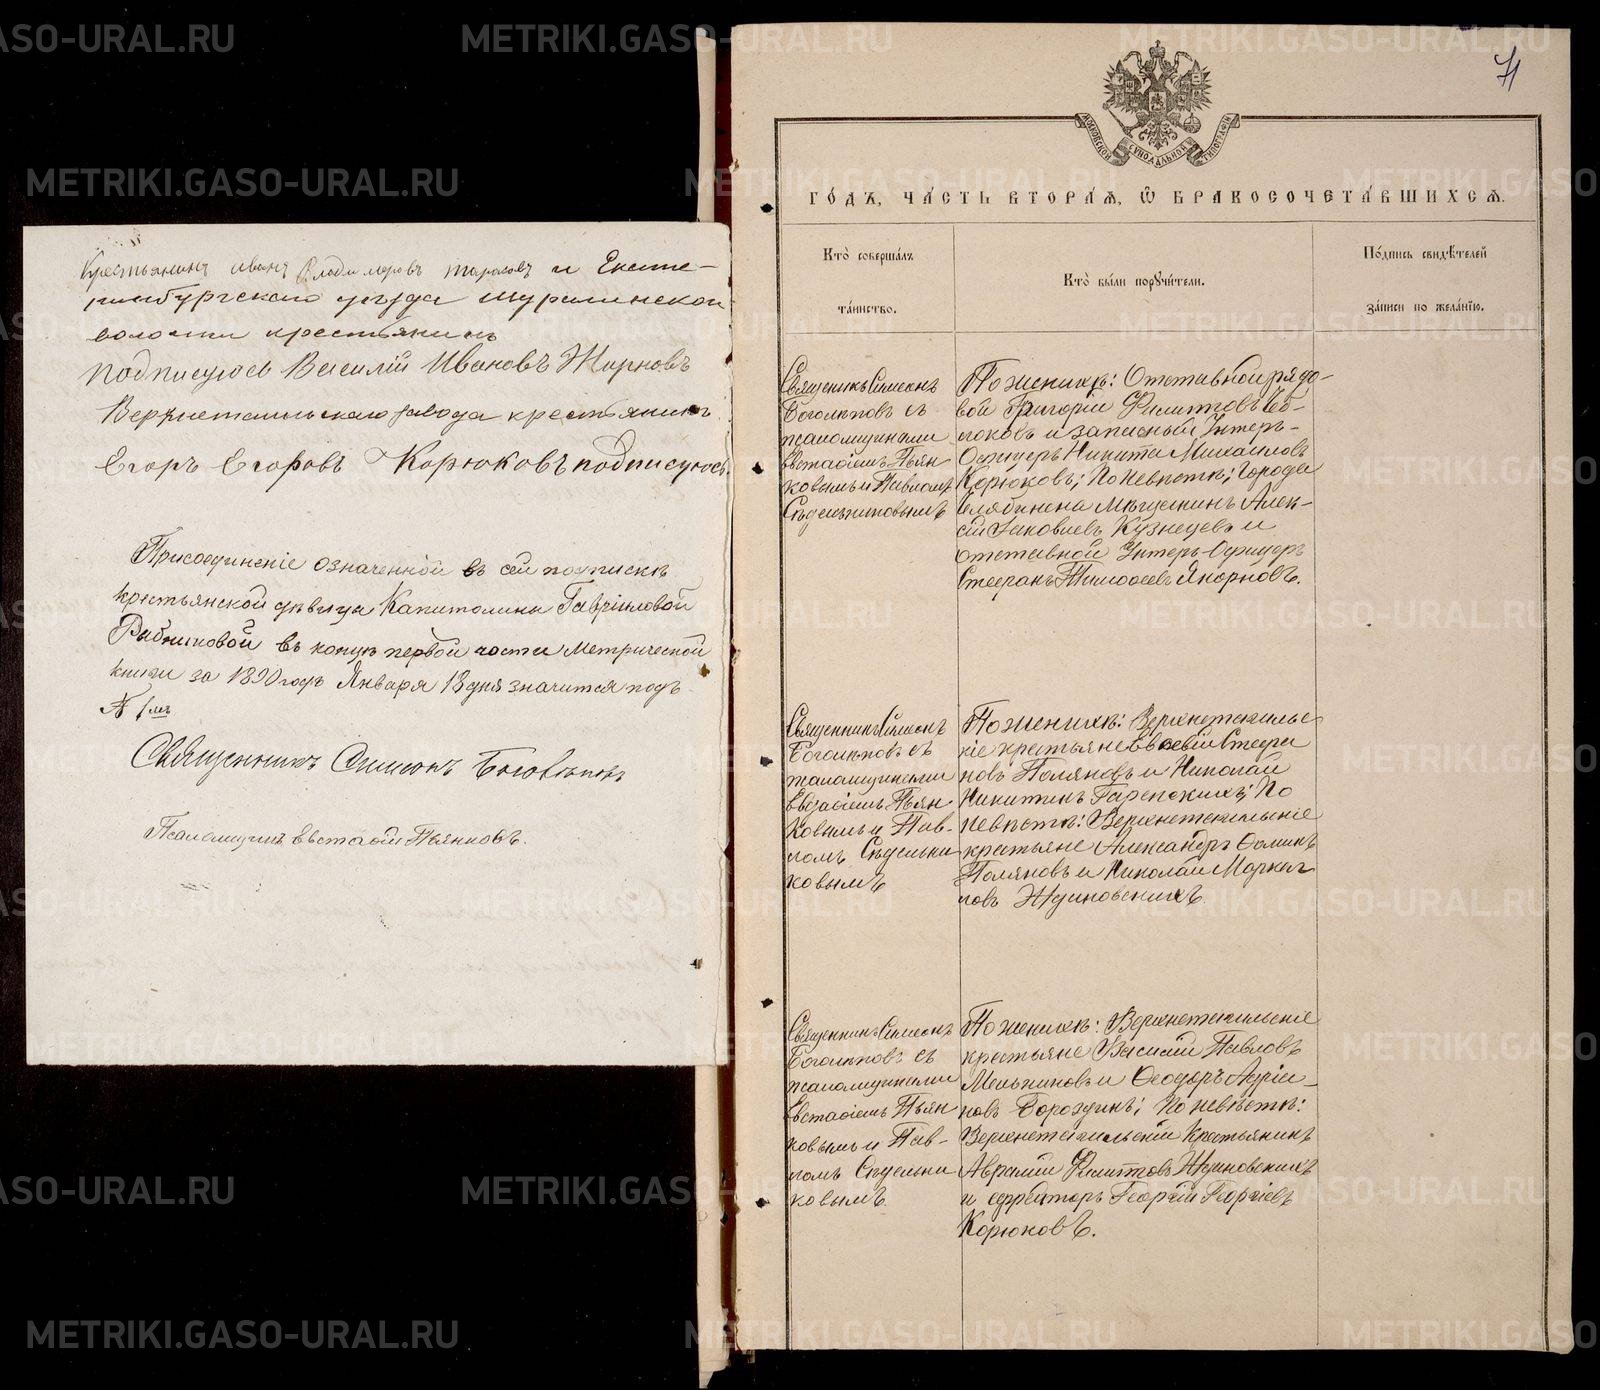 Крестьянинъ иванъ Владимировъ тарасовъ и Екате-
ринбургскаго уезда Шуралинской
волости крестьянинъ
подписуюсь Василій Ивановъ Жирновъ
Верхнетагильскаго завода крестьянинъ
Егоръ Егоровъ Корюковъ подписуюсь.
Присоединеніе означенной въ сей подпискѣ
крестьянской дѣвицы Капитолины Гавріиловой
въ концѣ первой части метрической
книги за 1890 годъ Января 18 дня значится подъ
№ 1мъ
Священникъ Симеонъ Боголѣповъ
Псаломщикъ Евстафій Пьянковъ.
71
МОСКОВСКОЙ СѴНОДАЛЬНОЙ ТИПОГРАФІИ
ГО́ДЪ, ЧА́СТЬ ВТОРА́Ѧ, Ѽ БРАКОСОЧЕТА́ВШИХСѦ.
Кто̀ соверша́лъ
та́инство.
Кто̀ бы́ли порꙋчи́тели.
По́дпись свидѣ́телей
за́писи по жела́нїю.
Священникъ Симеонъ
Боголѣповъ съ
псаломщиками
Евстафіемъ Пьян
ковымъ и Павломъ
Сѣдельниковымъ
По женихѣ: Отставной рядо-
вой Григорій Филиповъ
и запасный Унтеръ-
Офицеръ Никита Михаиловъ
Корюковъ; По невѣстѣ; Города
Челябинска мѣщанинъ Алек-
сій Іаковлевъ Кузнецовъ и
отставной Унтеръ-Офицеръ
Стефанъ Тимофеевъ Якорновъ.
Священникъ Симеонъ
Боголѣповъ съ
псаломщиками
Евстафіемъ Пьян
ковымъ и Пав-
ломъ Сѣдельни
ковымъ
По женихѣ: Верхнетагильс
кіе крестьяне Евсевій Стефа
новъ Поляковъ и Николай
Никитинъ Гарепскихъ; По
невѣстѣ: Верхнетагильскіе
крестьяне Александръ Фоминъ
Поляковъ и Николай Маркел
ловъ Ждановскихъ.
Священникъ Симеонъ
Боголѣповъ съ
псаломщиками
Евстафіемъ Пьян
ковымъ и Пав-
ломъ Сѣдельни
ковымъ.
По женихѣ: Верхнетагильскіе
крестьяне Василій Павловъ
Мельниковъ и Феодоръ Адріа-
новъ Бороздинъ; По невѣстѣ:
Верхнетагильскій Крестьянинъ
Аврамій Филиповъ Ждановскихъ
и ефрейторъ Георгій Георгіевъ
Корюковъ.
METRIKI.GASO-URAL.RU